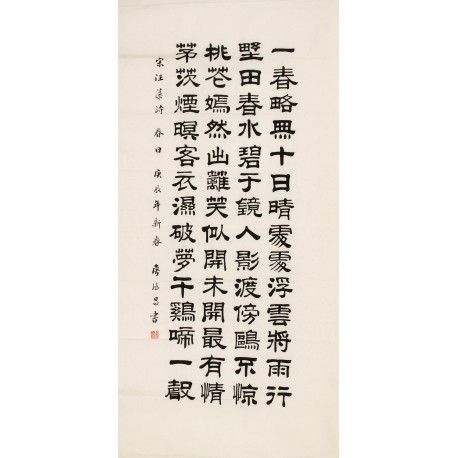 一春略無十日晴處處浮雲將雨行
野田春水碧于鏡人影渡傍鷗不驚
桃花嫣然出籬笑似開未開最有情
茅茨煙暝客衣濕破夢午鷄啼一聲
宋汪藻詩 春日 庚辰年新春 昌書